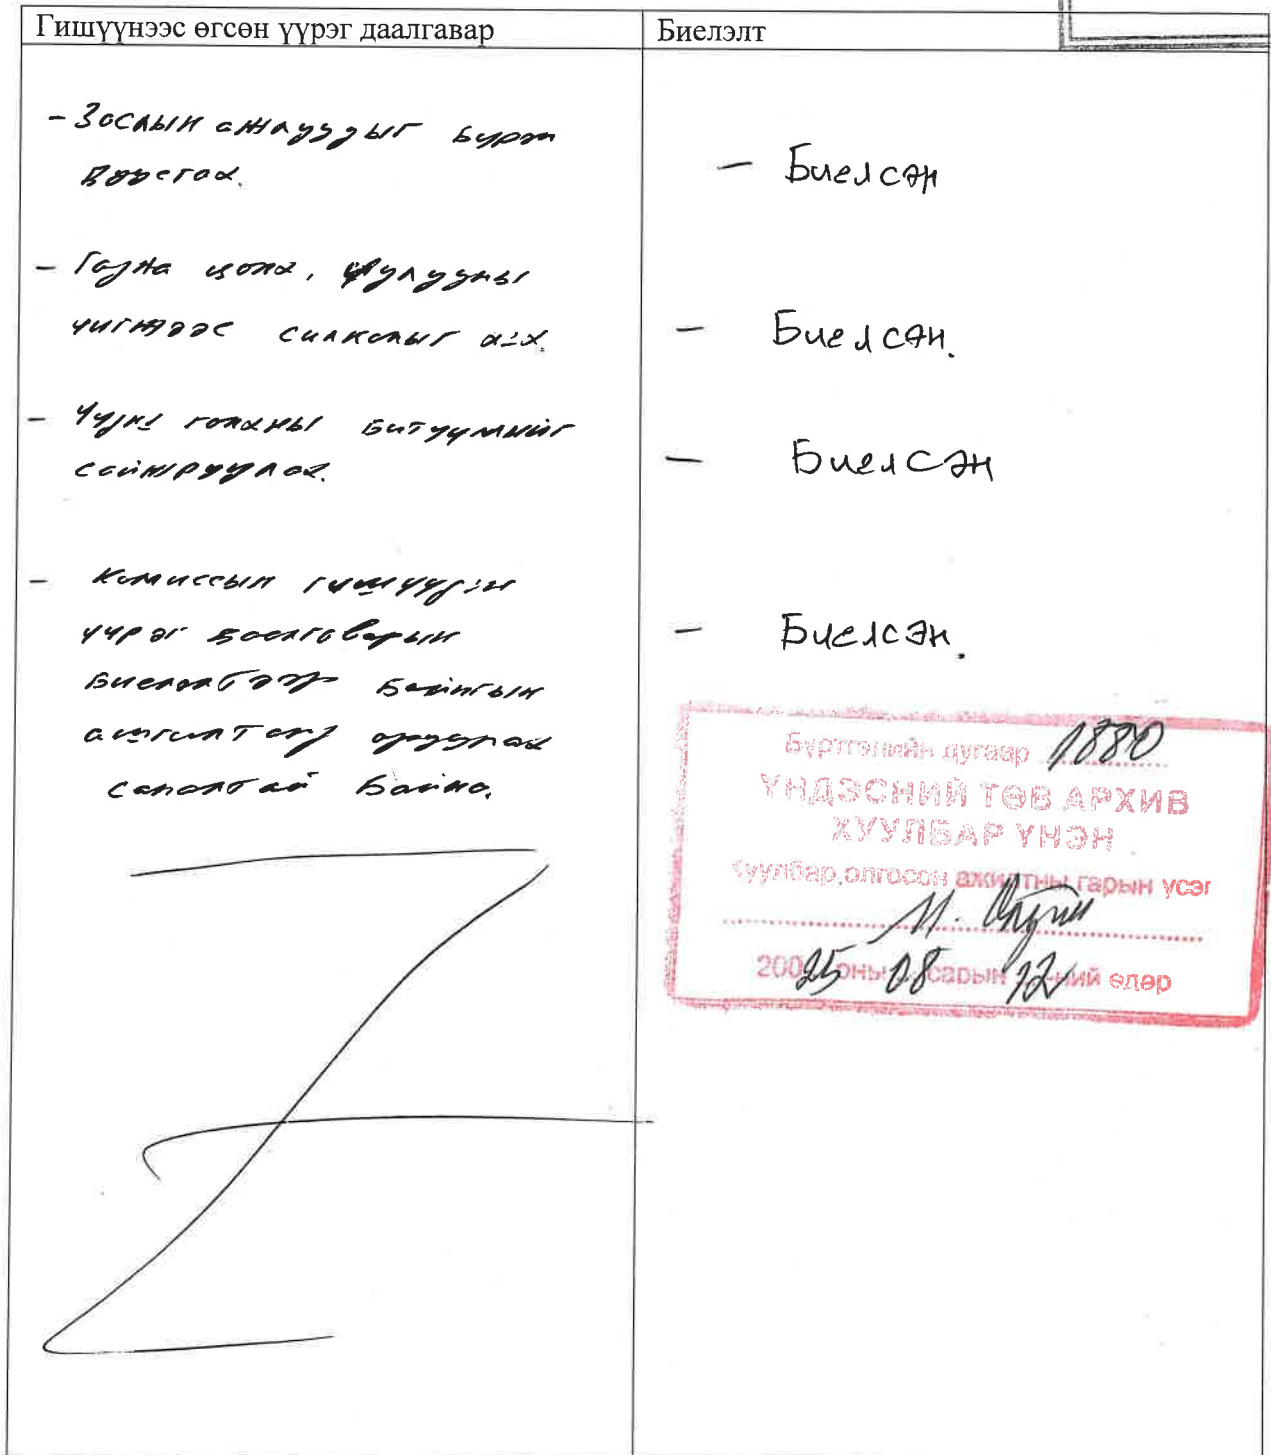 Гишүүнээс өгсөн үүрэг даалгавар
Биелэлт
- Заслын ажлуудыг бүрэн
дуусгах.
- Биелсэн
- Гадна цонх, тулгууны
чигжээс силконыг авах.
- Биелсэн.
- Үүдний хаалганы битүүмжийг
сайжруулах.
- Биелсэн
- Комиссын гишүүдийн
үүрэг даалгаварын
биелэлтээр байнгын
ашиглалтанд оруулах
саналтай байна.
- Биелсэн.
Бүртгэлийн дугаар 1880
ҮНДЭСНИЙ ТӨВ АРХИВ
ХУУЛБАР ҮНЭН
Хуулбар олгосон ажилтны гарын үсэг
200 25 оны 08 сарын 12 ний өдөр